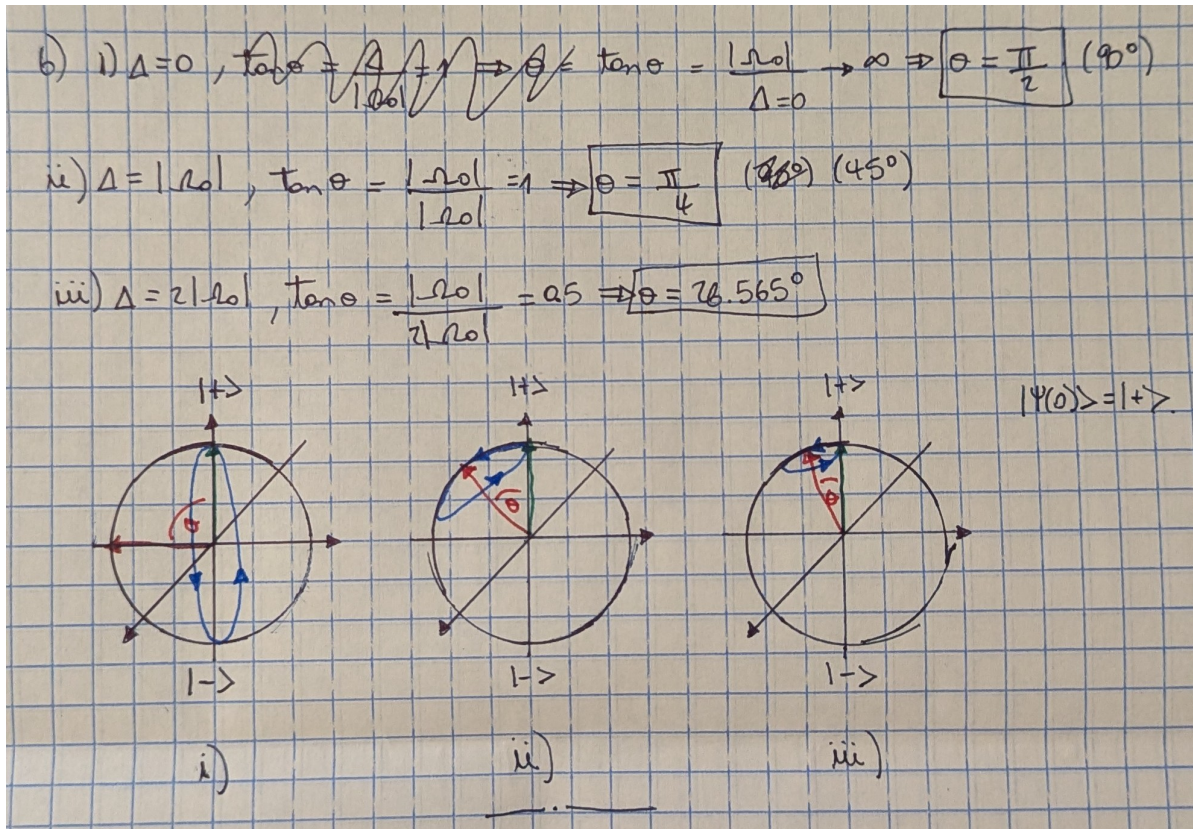 b) i) Δ=0 , tanθ = |Ω0| / Δ=0 → ∞ ⇒ θ = π/2 (90°)
ii) Δ = |Ω0| , tanθ = |Ω0| / |Ω0| = 1 ⇒ θ = π/4 (45°)
iii) Δ = 2|Ω0| , tanθ = |Ω0| / 2|Ω0| = 0.5 ⇒ θ = 26.565°
|+> |+> |+> |Ψ(0)> = |+>.
θ θ θ
|-> |-> |->
i) ii) iii)